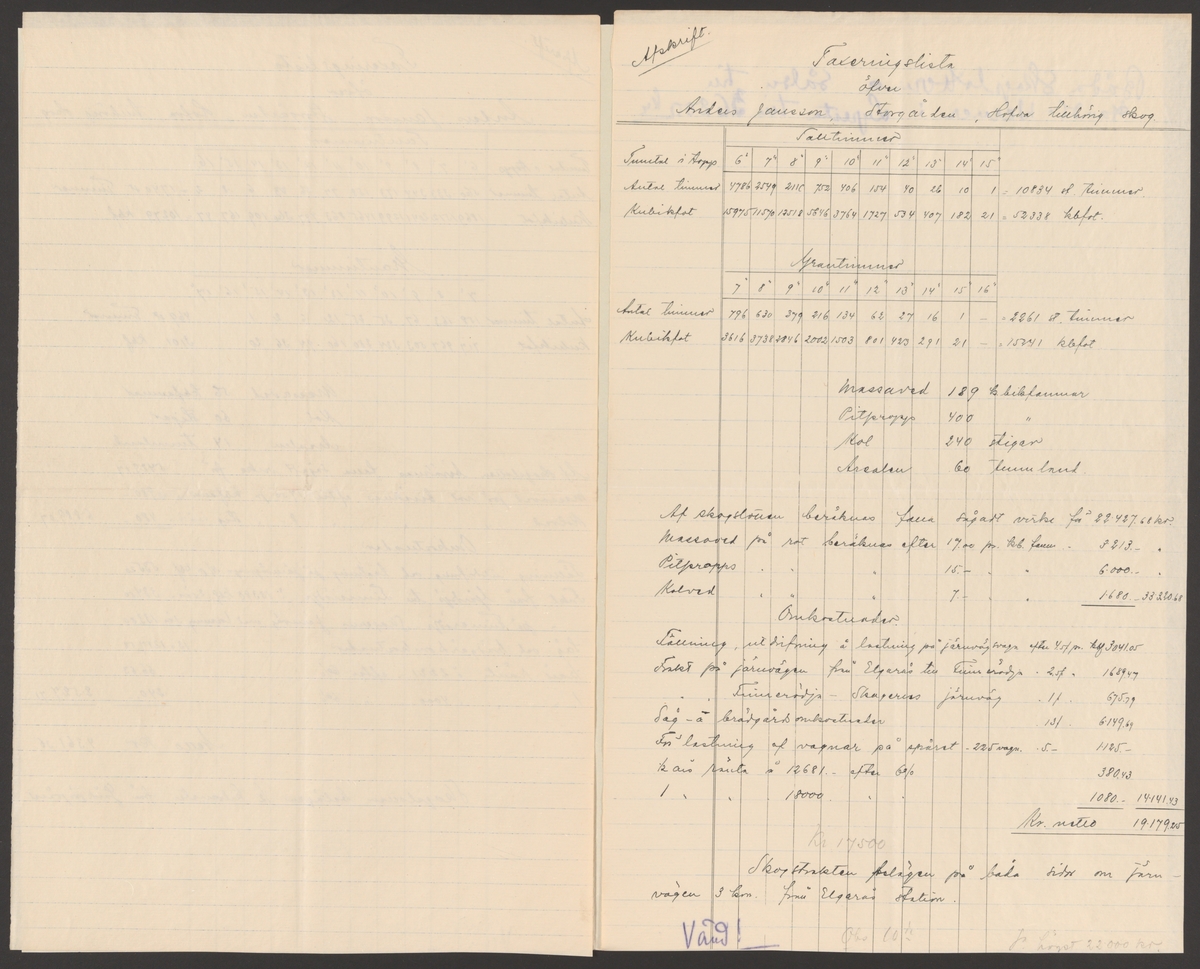 Afskrift.
Taxeringslista
öfver
Anders Jansson, Storgården, Hofva tillhörig skog.
Talltimmer
Tumtal i topp 6" 7" 8" 9" 10" 11" 12" 13" 14" 15"
Antal timmer 4786 2549 2110 752 406 154 40 26 10 1 = 10834 st. timmer.
Kubikfot 15975 11570 12518 5646 3764 1727 534 407 182 21 = 52338 kbfot.
Grantimmer
7" 8" 9" 10" 11" 12" 13" 14" 15" 16"
Antal timmer 796 630 379 216 134 62 27 16 1 - = 2261 st. timmer
Kubikfot 3616 3738 2846 2002 1503 801 423 291 21 - = 15241 kbfot
Massaved 189 kbikfamnar
Pitprops 400 "
Kol 240 stigar
Arealen 60 tunnland.
Af skogslöuen beräknas fana sågadt virke få 22427.68 kr.
Massaved på rot beräknas efter 17.00 pr. kb. famn. 3213.- "
Pitprops " " " 15.- " " 6000.- "
Kolved " " " 7.- " " 1680.- 33320.68
Omkostnader.
Fällning, utdrifning å lastning på järnvägsvagn efter 45/ pr. kbf 3041.05
Frakt på järnvägen från Elgarås till Finnerödja " 2.5/ " 1689.47
" " Finnerödja - Skagerns järnväg " 1/ 675.79
Såg- å brädgårdsomkostnader 13/ 6149.61
För lastning af vagnar på spåret - 225 vagn. 5.- 1125.-
½ års ränta å 12681.- efter 6% 380.43
1 " " " 18000 " " 1080.- 14141.43
Kr. netto 19179.25
Kr 17500
Skogstrakten belägen på båda sidor om järn-
vägen 3 km. från Elgarås station.
Vänd!
22000 kr.